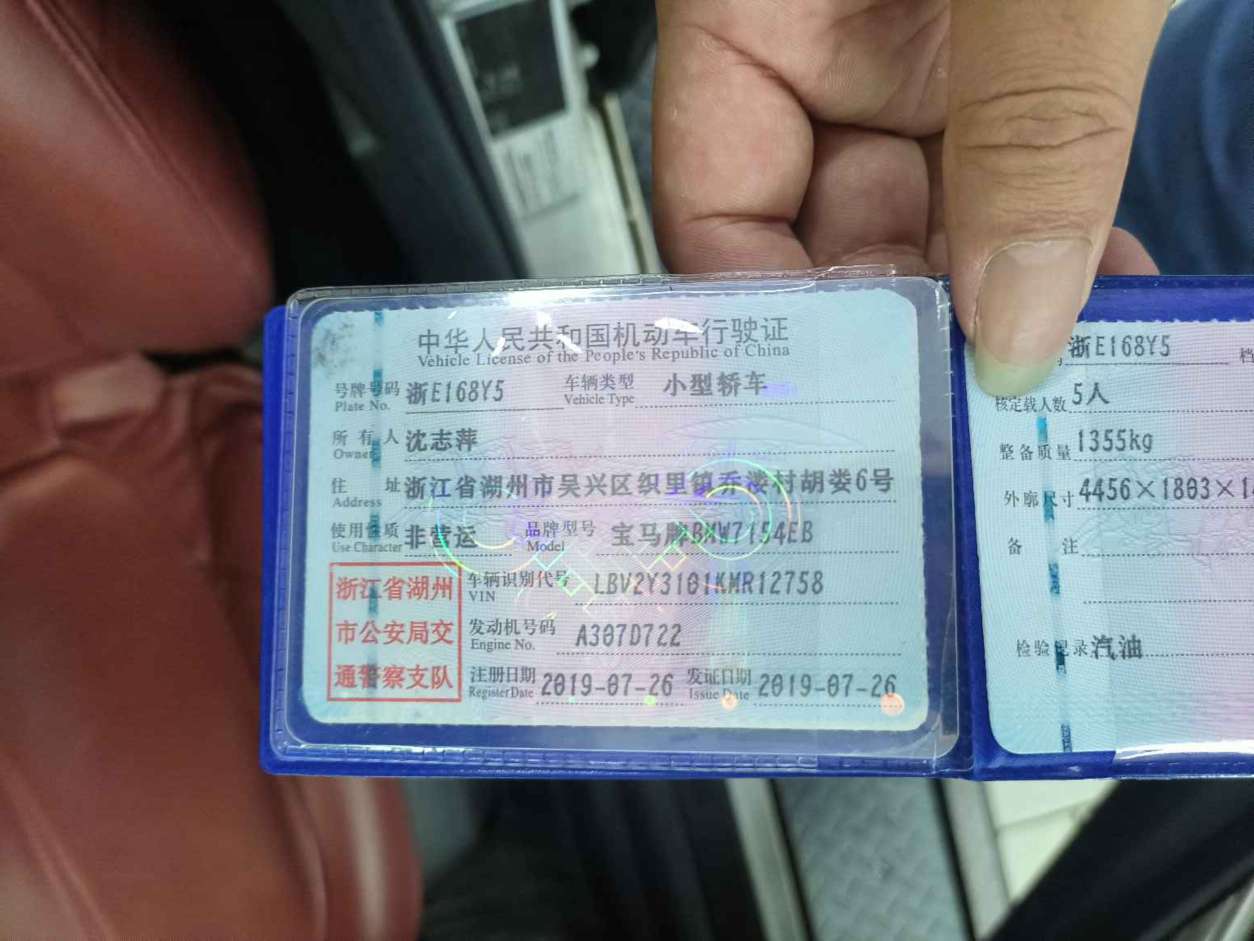 中华人民共和国机动车行驶证
Vehicle License of the People's Republic of China
号牌号码 浙E168Y5 车辆类型 小型轿车
Plate No. Vehicle Type
所有人 沈志萍
Owner
住址 浙江省湖州市吴兴区织里镇乔溇村胡娄6号
Address
使用性质 非营运 品牌型号 宝马牌BMW7154EB
Use Character Model
浙江省湖州
市公安局交
通警察支队
车辆识别代号 LBV2Y3101KMR12758
VIN
发动机号码 A307D722
Engine No.
注册日期 2019-07-26 发证日期 2019-07-26
Register Date Issue Date
浙E168Y5 档
核定载人数 5人
整备质量 1355kg
外廓尺寸 4456×1803×1
备注
检验记录 汽油